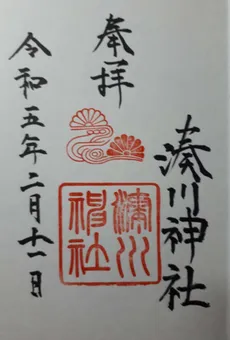 奉拝
湊川神社
湊川神社
令和五年二月十一日